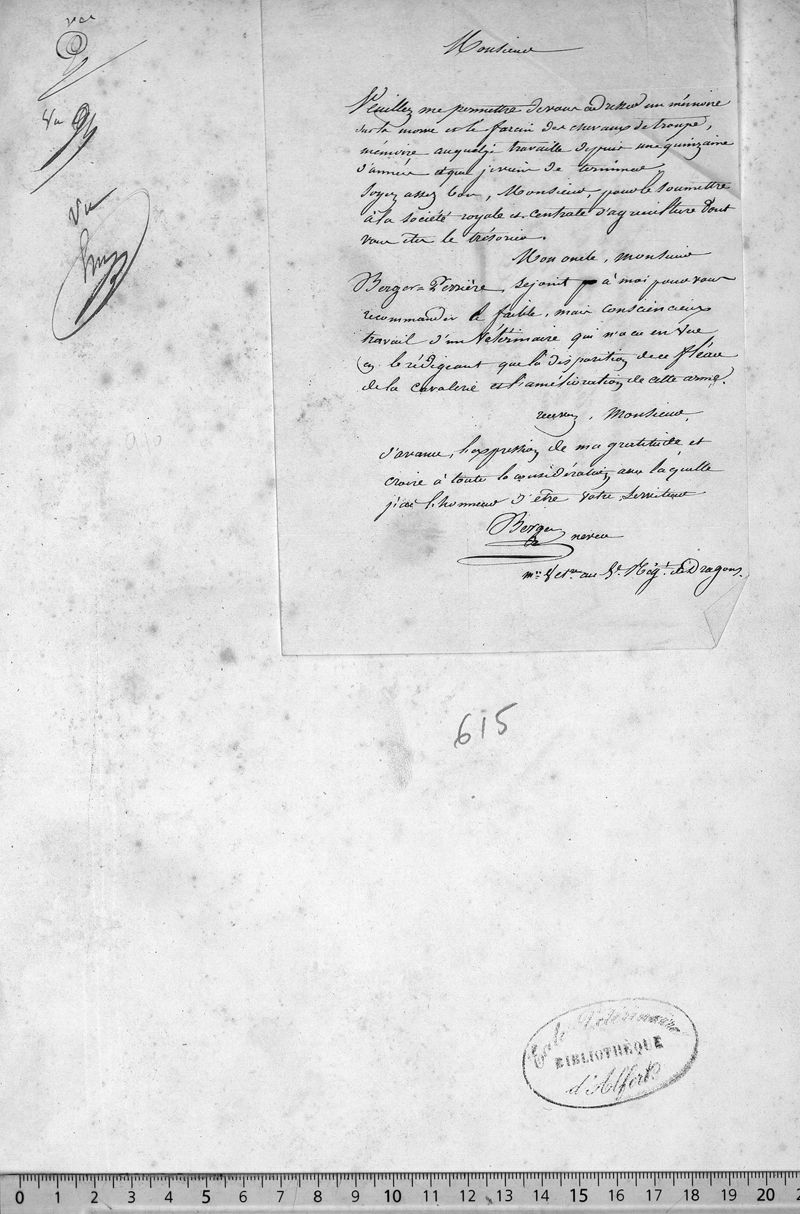 vu
Vu
Vu
Monsieur
Veuillez me permettre de vous adresser un mémoire
sur la morve et le farcin des chevaux de troupe,
mémoire auquel j'ai travaillé depuis une quinzaine
d'année et que je viens de terminer,
soyez assez bon, Monsieur, pour le soumettre
à la société royale et centrale d'agriculture dont
vous êtes le trésorier.
Mon oncle, monsieur
Berger-Perrière, se joint à moi pour vous
recommander le faible, mais consciencieux
travail d'un Vétérinaire qui n'a eu en vue
en le rédigeant que la disparition de ce fléau
de la cavalerie et l'amélioration de cette arme.
recevez, Monsieur,
d'avance, l'expression de ma gratitude et
croire à toute la considération avec laquelle
j'ai l'honneur d'être votre serviteur
Berger
neveu
au 5e Régt de Dragons.
615
Ecole Vétérinaire
BIBLIOTHÈQUE
d'Alfort
0 1 2 3 4 5 6 7 8 9 10 11 12 13 14 15 16 17 18 19 20